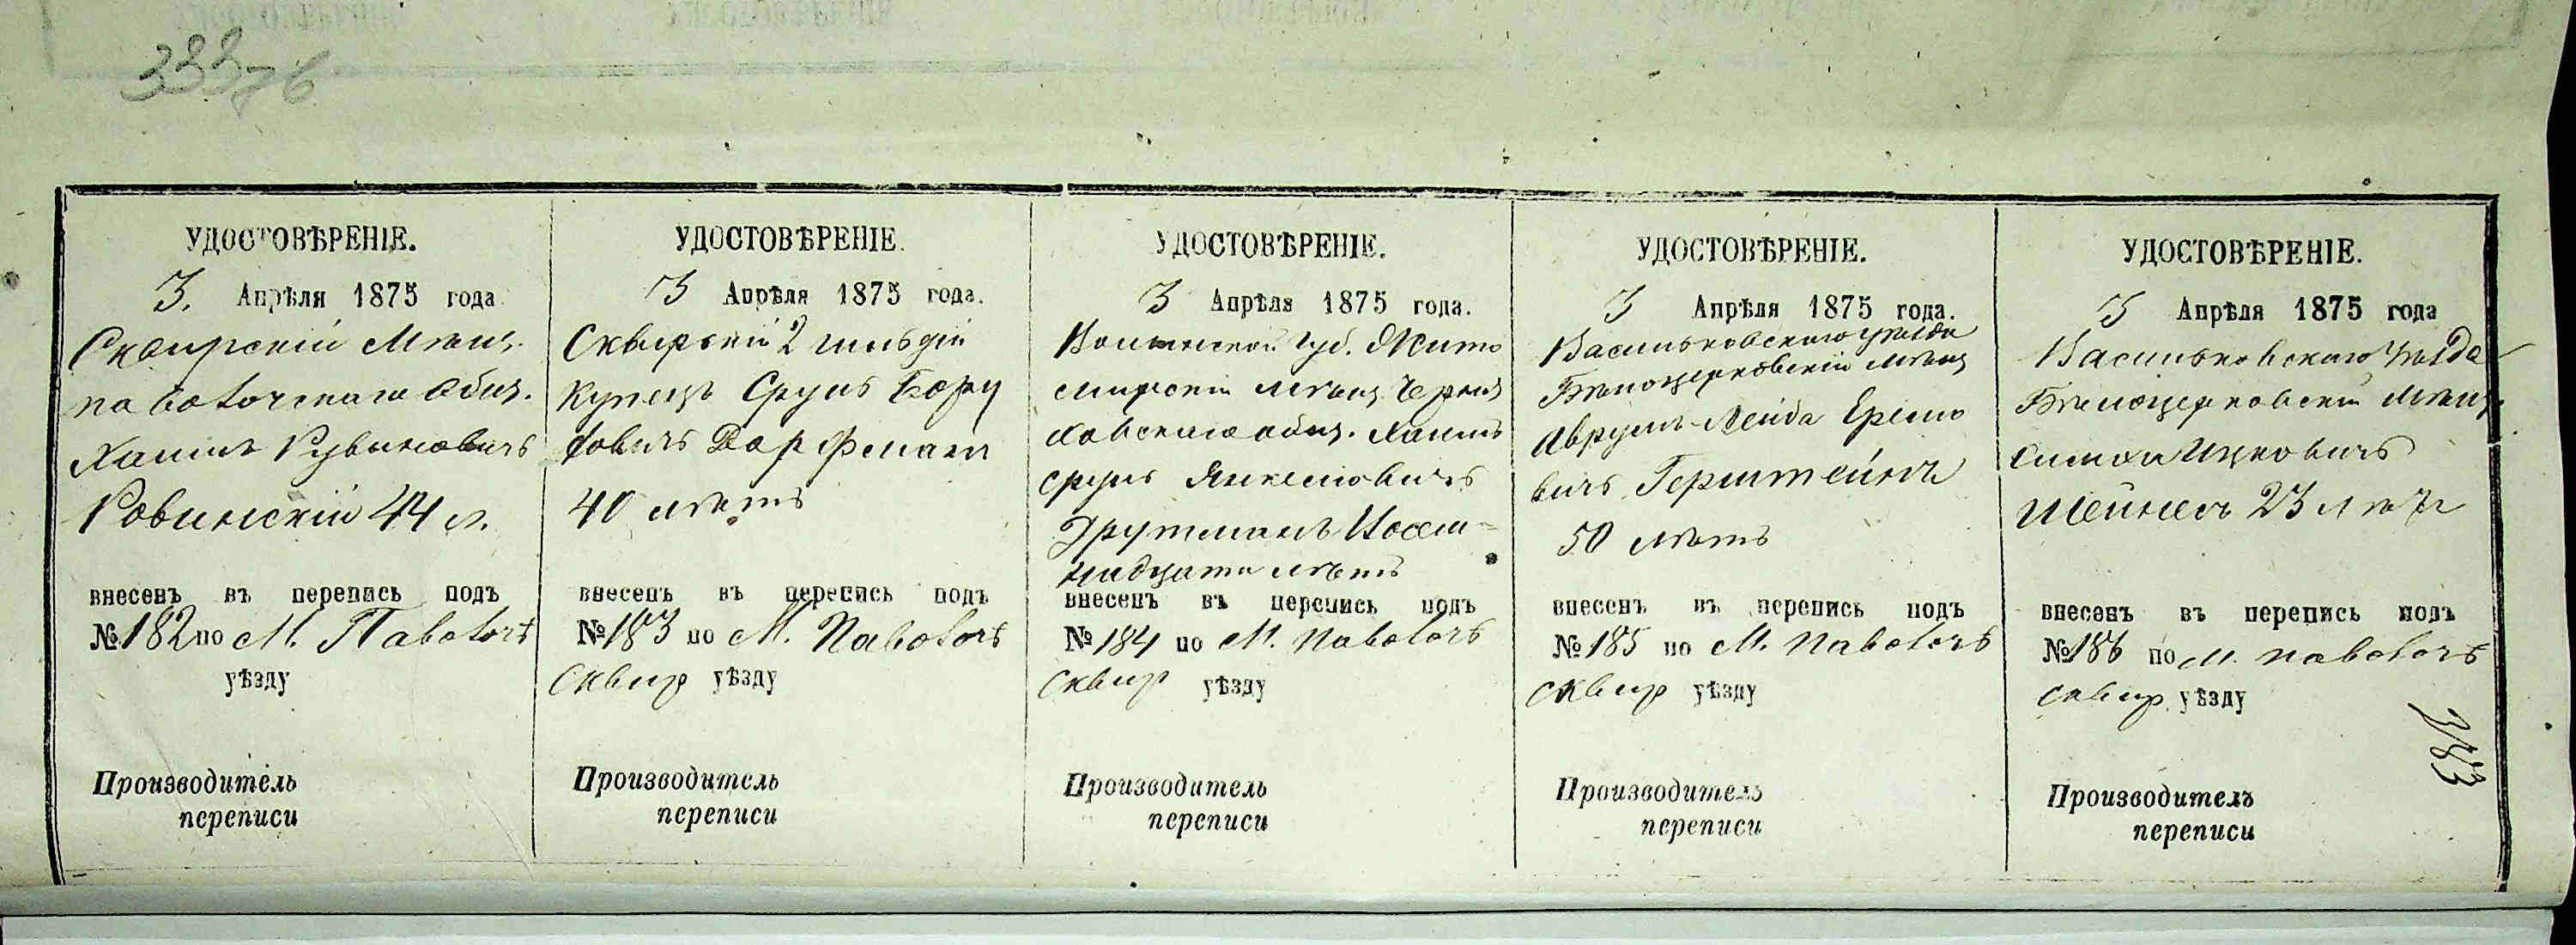 333 76
УДОСТОВѢРЕНІЕ.
3. Апрѣля 1875 года
Сквирскій Мѣщ.
паволочскаго Общ.
Хаимъ Рувиновичъ
Ровинскій 44 л.
внесенъ въ перепись подъ
№ 182 по М. Паволочѣ
уѣзду
Производитель
переписи
УДОСТОВѢРЕНІЕ.
3 Апрѣля 1875 года.
Сквирскій 2 гильдіи
купецъ Сруль Бору
ховичъ Дорфманъ
40 лѣтъ
внесенъ въ перепись подъ
№ 183 по М. Паволочѣ
Сквир уѣзду
Производитель
переписи
УДОСТОВѢРЕНІЕ.
3 Апрѣля 1875 года.
Волынской Губ. Жито
мирскій мѣщ. Черня
ховскаго общ. Хаимъ
сруль Янкелевичъ
Трутманъ Восем-
надцати лѣтъ
внесенъ въ перепись подъ
№ 184 по М. Паволочѣ
Сквир уѣзду
Производитель
переписи
УДОСТОВѢРЕНІЕ.
3 Апрѣля 1875 года.
Васильковскаго уѣзда
Бѣлоцерковскій мѣщ
Аврумъ-Лейба Ерémo
вичъ Герштейнъ
50 лѣтъ
внесенъ въ перепись подъ
№ 185 по М. Паволочѣ
Сквир уѣзду
Производитель
переписи
УДОСТОВѢРЕНІЕ.
3 Апрѣля 1875 года
Васильковскаго уѣзда
Бѣлоцерковскій мѣщ.
Симха Ицковичъ
Шейнесъ 23 лѣтъ
внесенъ въ перепись подъ
№ 186 по М. Паволочѣ
Сквир. уѣзду
383
Производитель
переписи